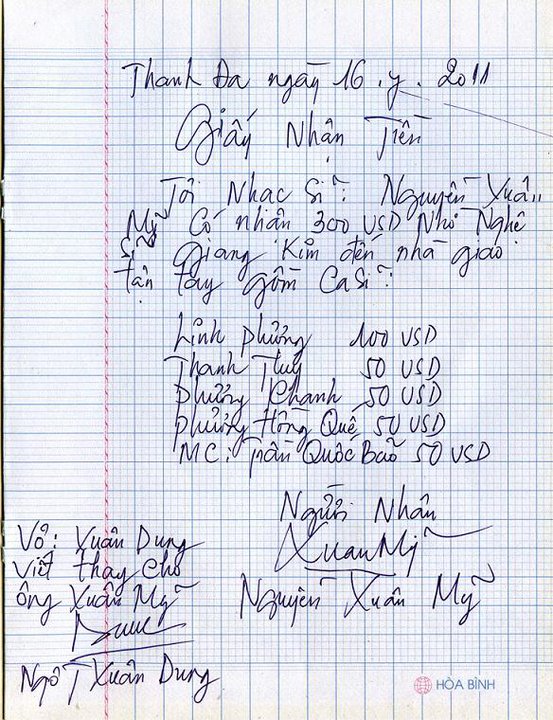 Thanh Đa ngày 16.y.2011
Giấy Nhận Tiền
Tôi Nhạc Sĩ: Nguyễn Xuân
Mỹ Có nhân 300 USD Nhờ Nghệ
Sĩ Giang Kim đến nhà giao
tận tay gồm Ca Sĩ:
Linh Phương 100 USD
Thanh Thuý 50 USD
Phương Chanh 50 USD
Phương Hồng Quế 50 USD
MC: Trần Quốc Bảo 50 USD
Người Nhân
Xuan Mỹ
Nguyễn Xuân Mỹ
Vợ: Xuân Dung
Viết thay cho
Ông Xuân Mỹ
Ngô T Xuân Dung
HÒA BÌNH